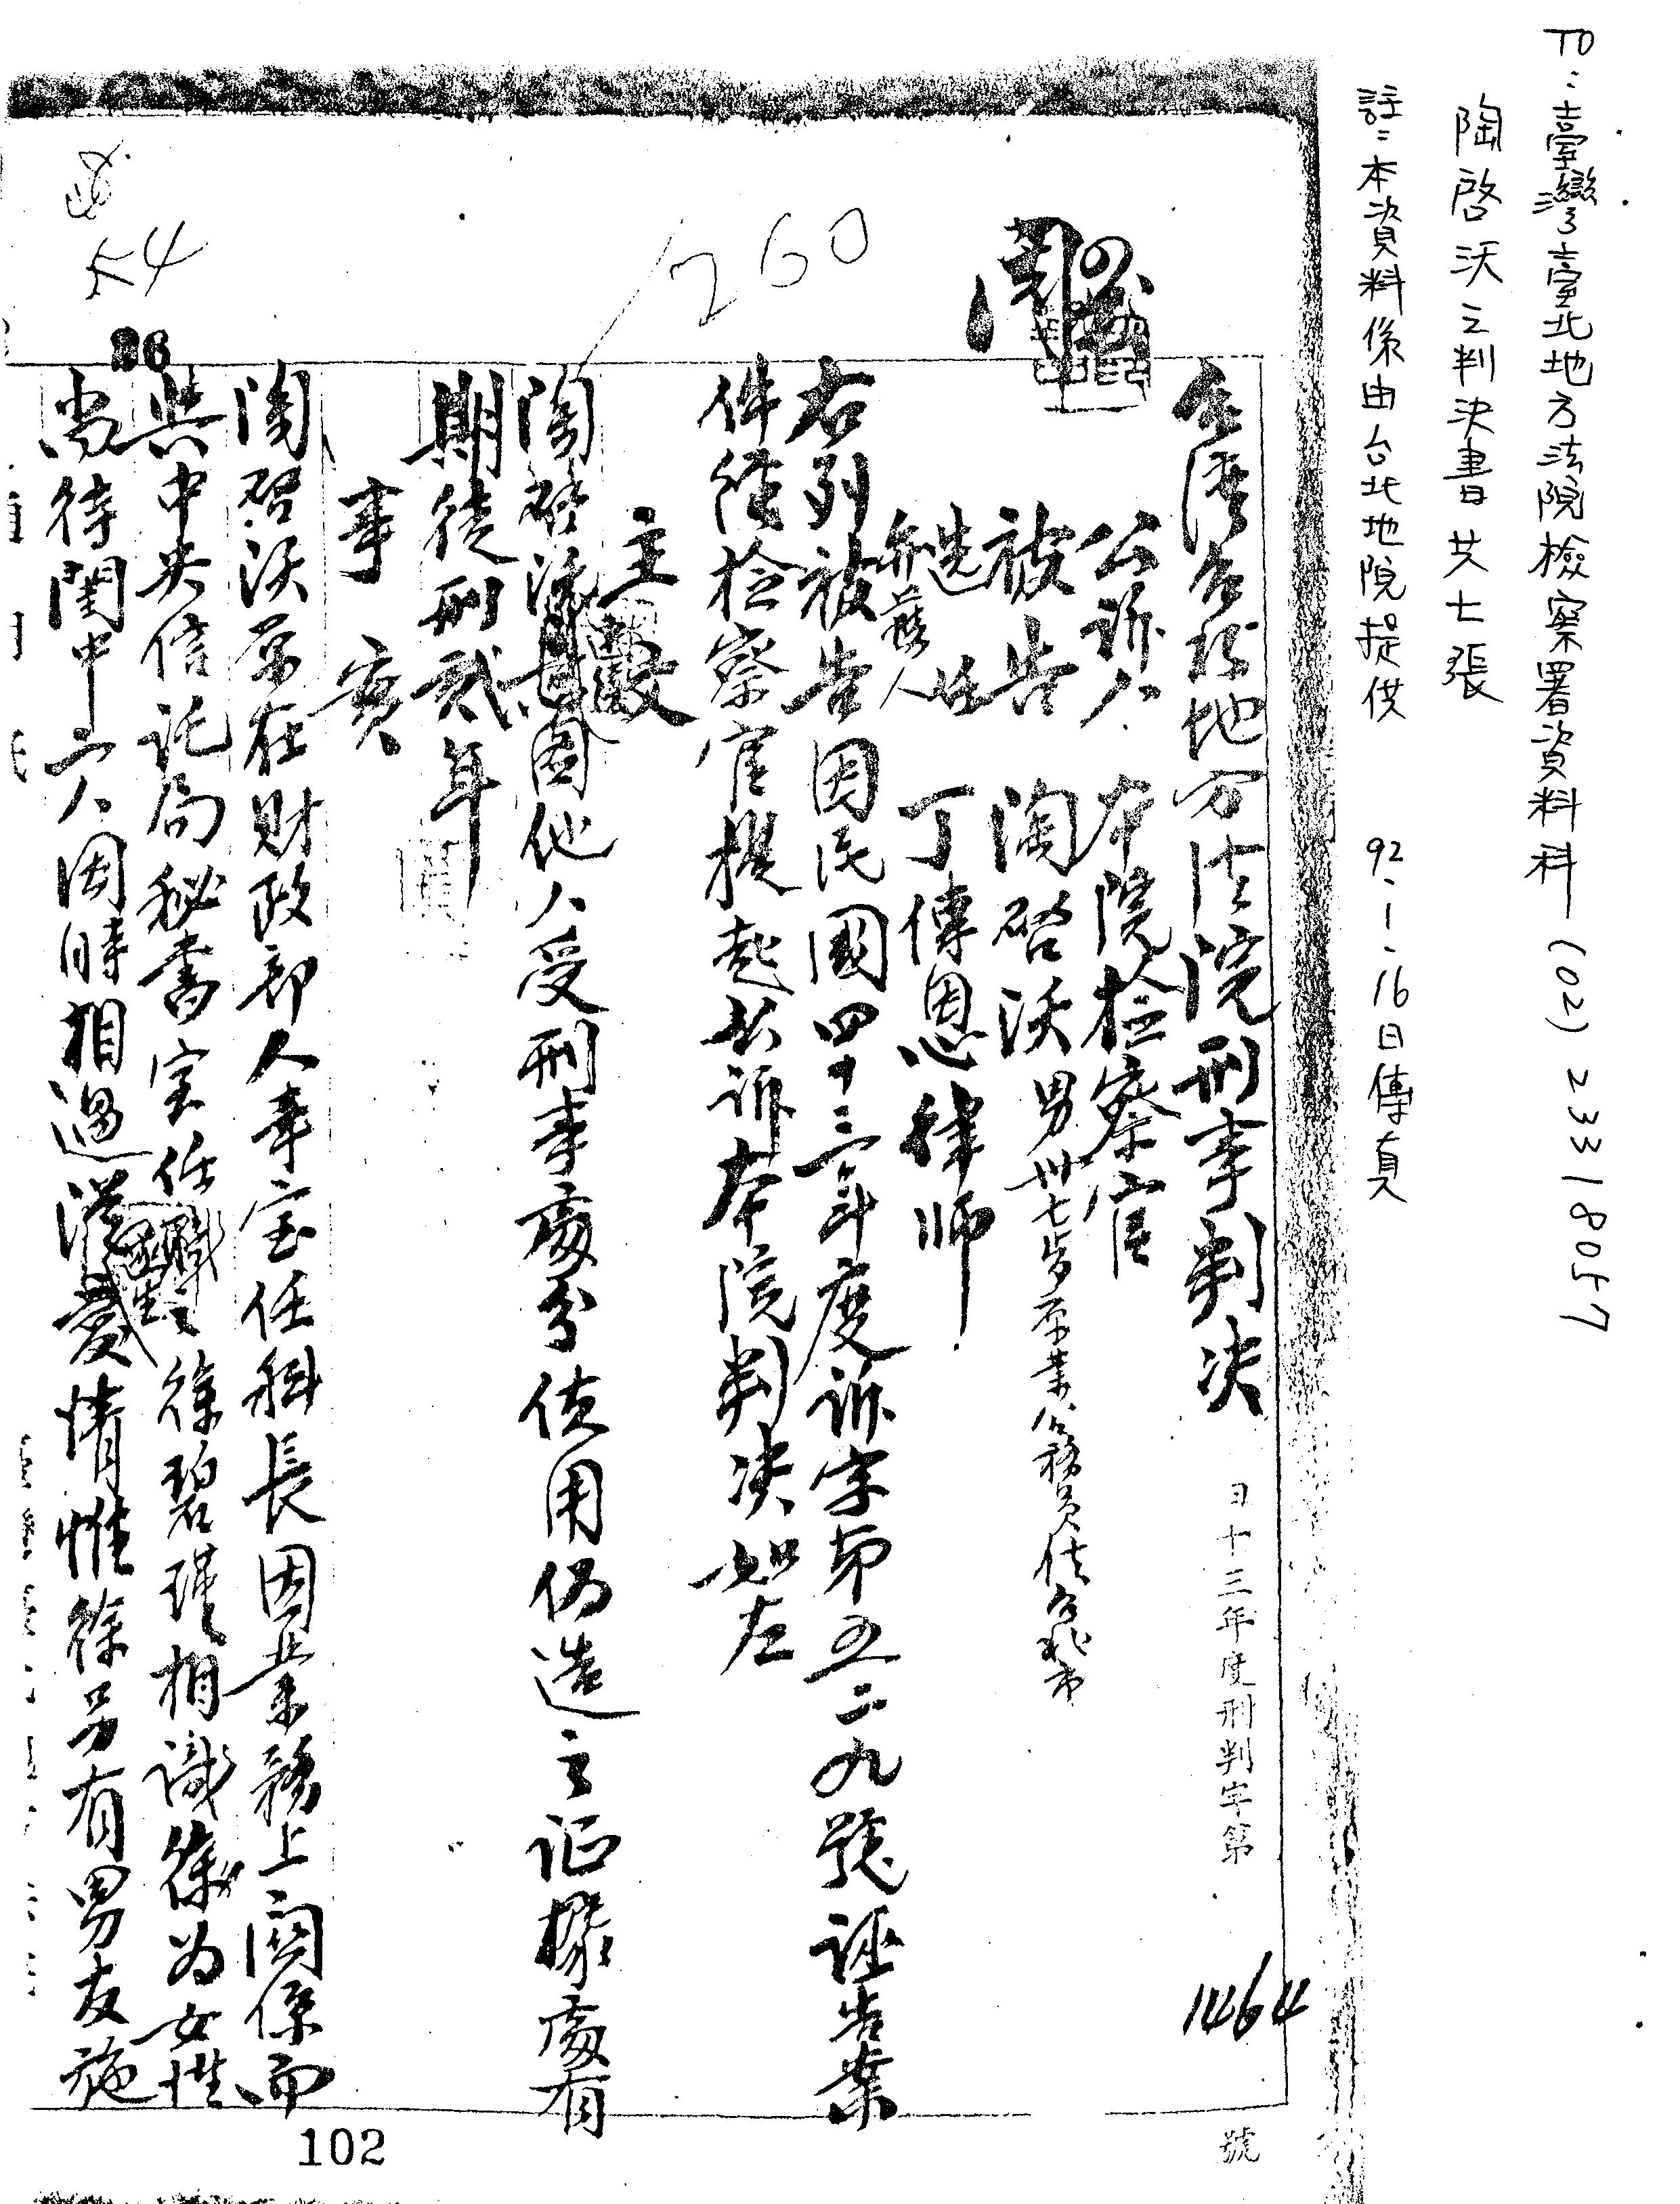 TO：臺灣臺北地方法院檢察署資料科 (02) 23318057
陶啓沃之判決書共七張
註：本資料係由台北地院提供 92-1-16日傳真
台湾台北地方法院刑事判决 四十三年度刑判字第 1464 號
公訴人 本院检察官
被告 陶啓沃 男 卅七岁 原業公務员 住台北市
选任
弁護人 丁傳恩律师
右列被告因民國四十三年度訴字第五二九號誣告案
件经检察官提起公訴本院判决如左
主文
陶啓沃意圖他人受刑事處分使用偽造之证據處有
期徒刑贰年
事实
陶啓沃原在財政部人事室任科長因業務上関係而
與中央信託局秘書室任職之徐碧瑾相識徐为女性
尚待閨中二人因時相過從 情惟徐另有男友施
260
54
36
102